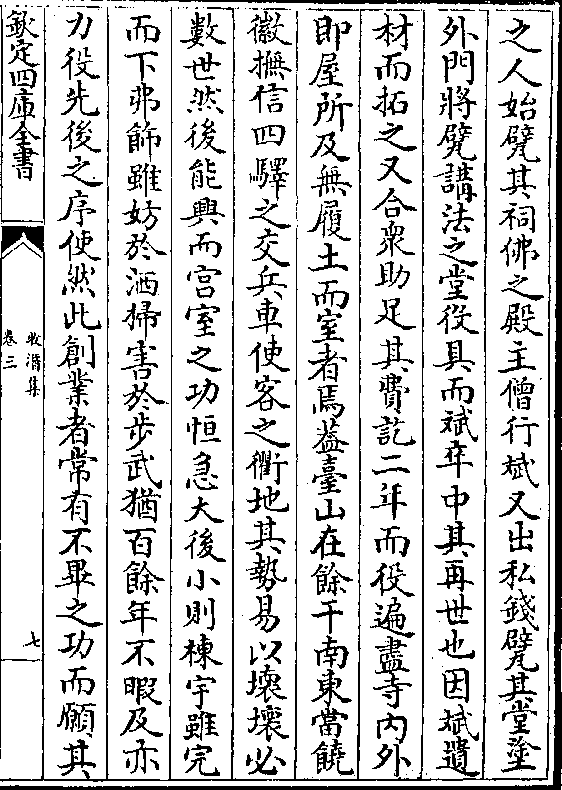 之人始甓其祠佛之殿主僧行斌又出私錢甓其堂塗
外門將甓講法之堂役具而斌卒中其再世也因斌遺
材而拓之又合衆助足其費訖二年而役遍盡寺内外
即屋所及無履土而室者焉葢臺山在餘干南東當饒
徽撫信四驛之交兵車使客之衝地其勢易以壊壊必
數世然後能興而宫室之功恒急大後小則棟宇雖完
而下弗飾雖妨於洒掃害於步武猶百餘年不暇及亦
力役先後之序使然此創業者常有不畢之功而願其
欽定四庫全書
牧潛集
卷三
七